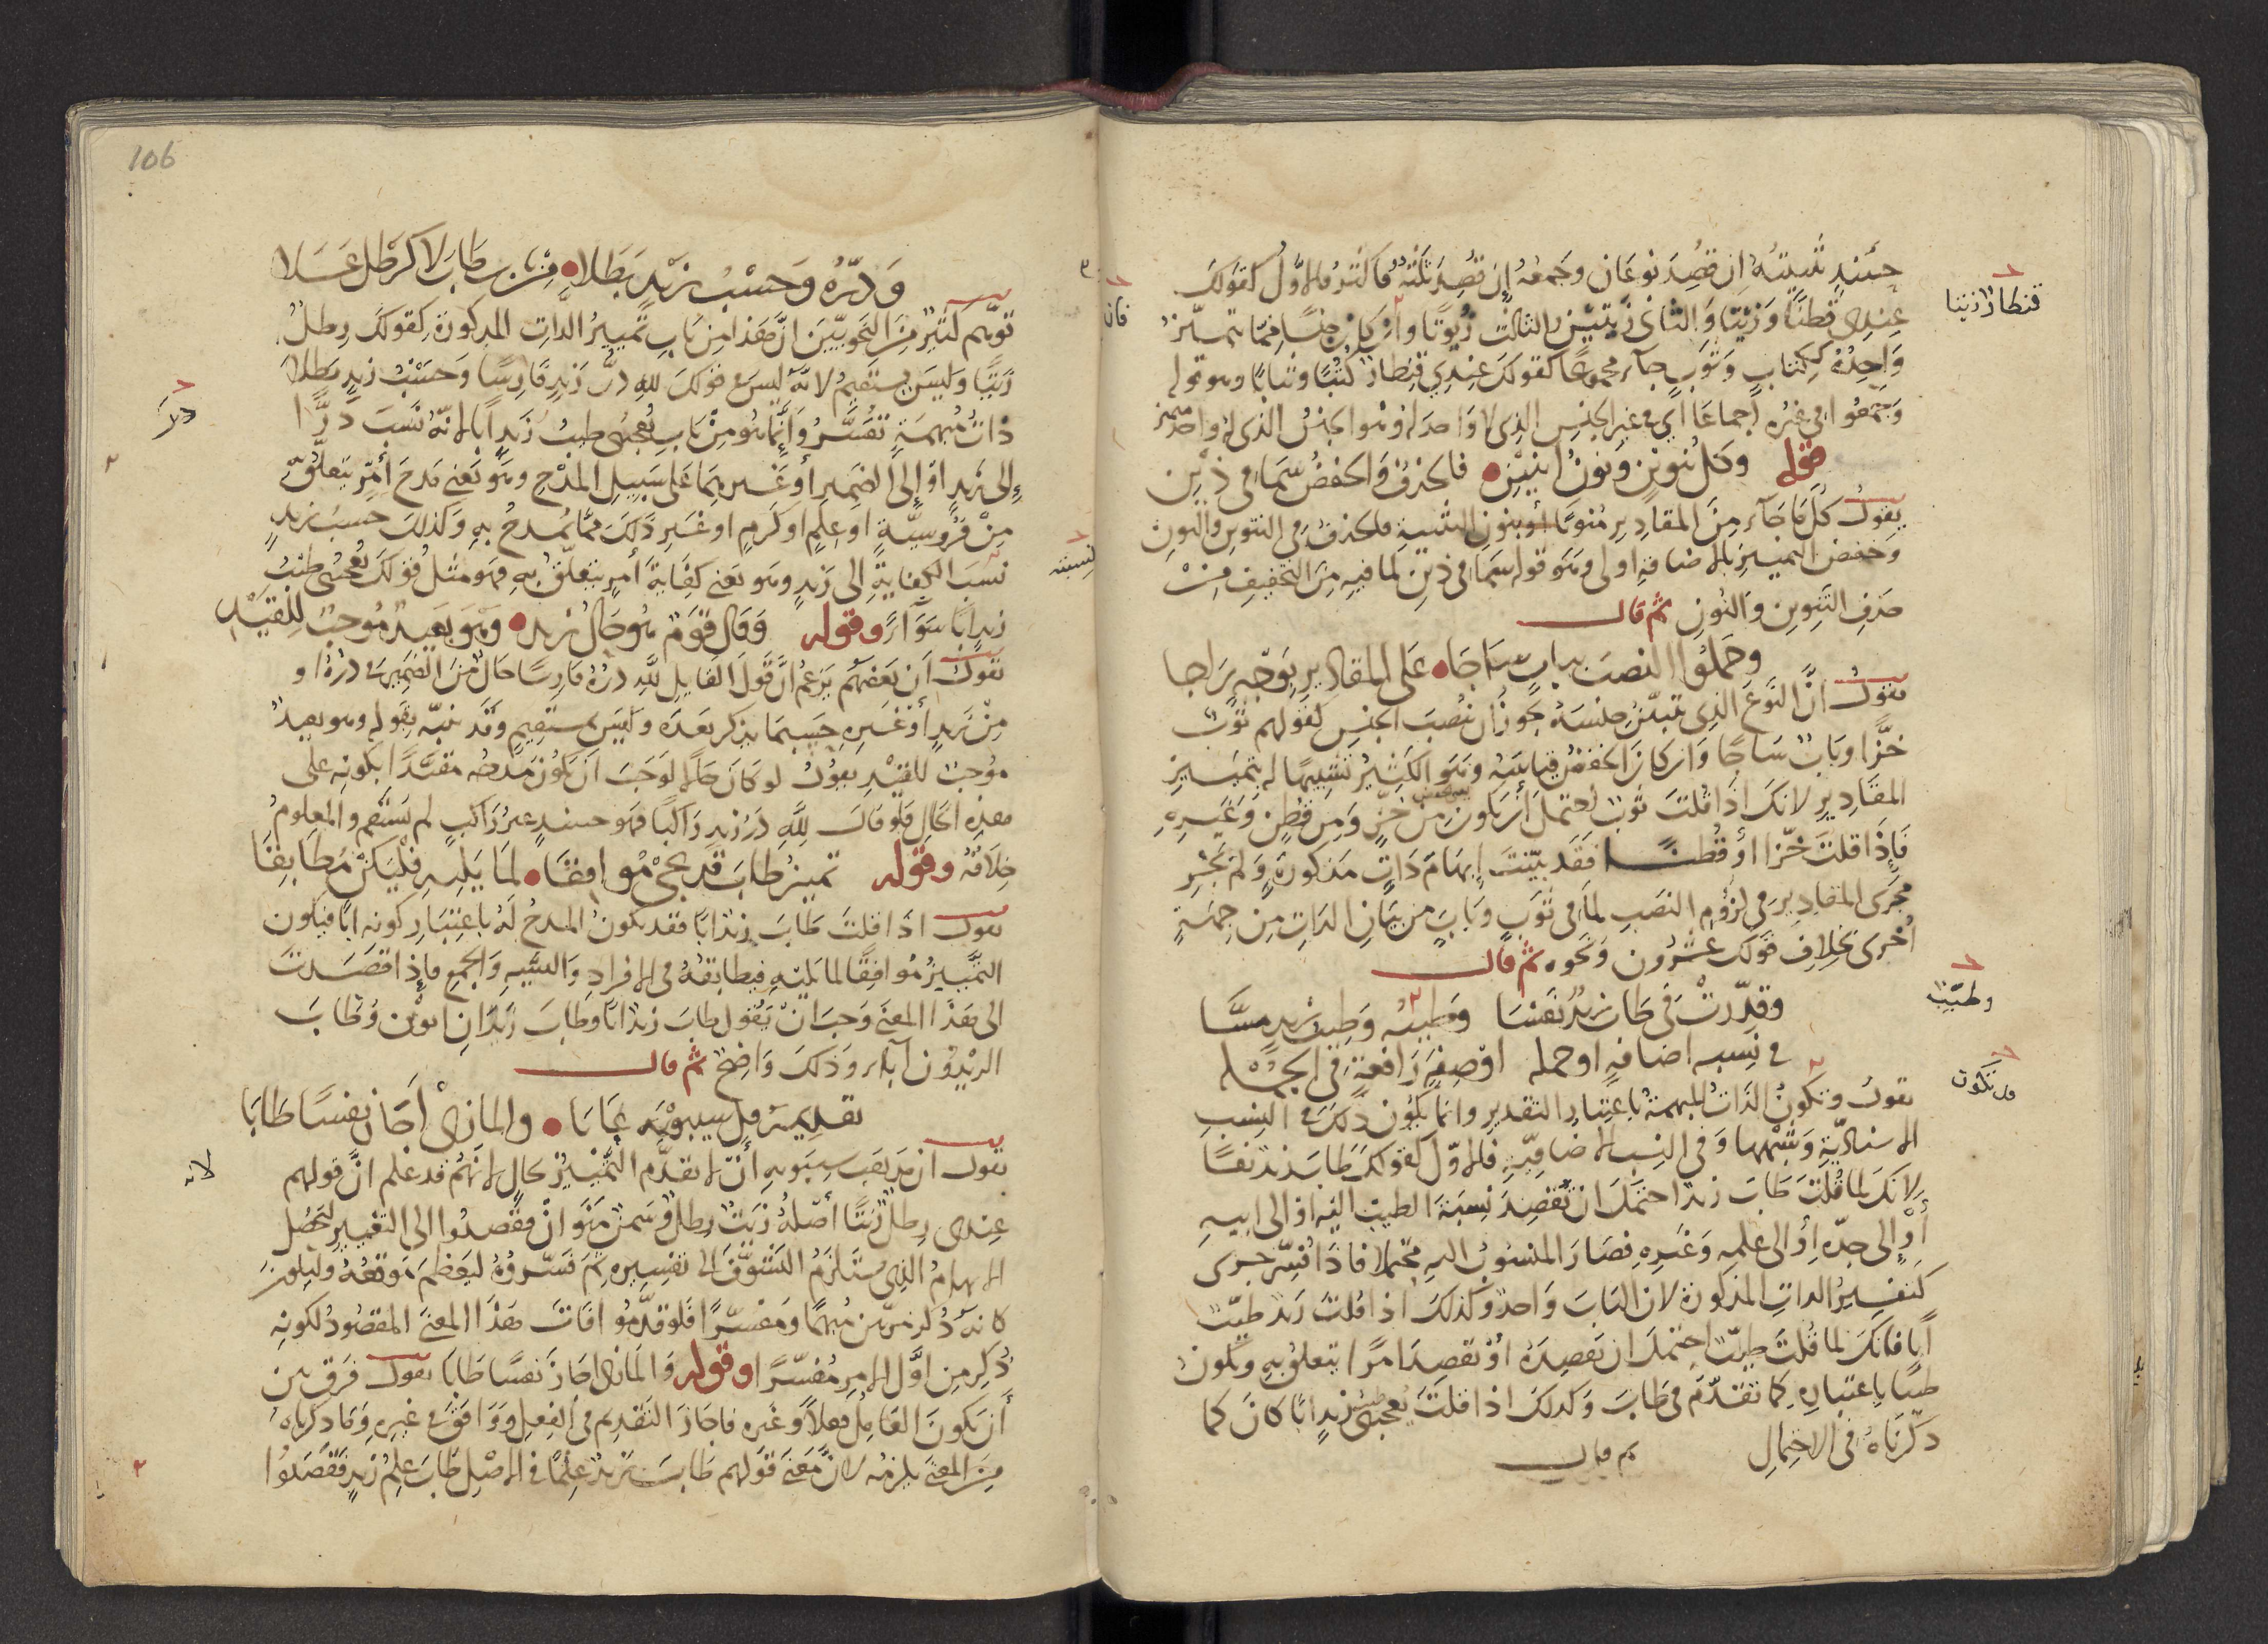 حينئذ تثنيته إن قصد نوعان وجمعه إن قصد ثلثة فاكثر فالاول كقولك
عندي قطنا وزيتا والثاني زيتين والثالث زيوتا وان كان جنسا مما تميز
واحده ككتاب وثوب جاء مجموعا كقولك عندي قنطار كتبا وثيابا وهو قوله
وجمعوا في غيره إجماعا أي في غير الجنس الذي لا واحد له وهو الجنس الذي له واحد مميز
قوله وكل تنوين ونون اثنين فاحذف واخفض سيما في ذين
يقول كل ما جاء من المقادير منونا أو بنون التثنية فلحذف في التنوين والنون
وخفض التمييز بالاضافة اولى وهو قوله سيما في ذين لما فيه من التخفيف من
حذف التنوين والنون ثم قال
وحملوا النصب بباب ساجا على المقادير بوجه راجا
يقول ان النوع الذي تبين جنسه يجوز أن ينصب الجنس كقولهم ثوب
خزا وباب ساجا وان كان الخفض قياسه وهو الكثير تشبيها له بتمييز
المقادير لانك اذا قلت ثوب احتمل أن يكون من خز ومن قطن وغيره
فإذا قلت خزا أو قطنا فقد بينت إبهام ذات مذكورة ولم يجر
مجرى المقادير في لزوم النصب لما في ثوب وباب من بيان الذات من جهة
أخرى بخلاف قولك عشرون ونحوه ثم قال
وقدرت في طاب زيد نفسا وطيبه وطيب زيد مسا
في نسبه اضافة او جمله او صفة رافعة في الجمله
يقول وتكون الذات المبهمة باعتبار التقدير وانما يكون ذلك في النسب
الاسنادية وشبهها وفي النسب الاضافية فالاول كقولك طاب زيد نفسا
لانك لما قلت طاب زيد احتمل ان تقصد نسبة الطيب اليه او الى ابيه
أو إلى جده أو الى علمه وغيره فصار المنسوب اليه محتملا فاذا فسر جرى
كتفسير الذات المذكورة لان الباب واحد وكذلك اذا قلت زيد طيب
أبا فانك لما قلت طيب احتمل ان تقصده أو تقصد امرا يتعلق به ويكون
طيبا باعتباره كما تقدم في طاب وكذلك اذا قلت يعجبني طيب زيد ابا كان كما
ذكرناه في الاحتمال ثم قال
قنطار زيتا
وطيب
قد تكون
106
ودره وحسب زيد بطلا من باب طاب لا كرطل عسلا
توهم كثير من النحويين ان هذا من باب تمييز الذات المذكورة كقولك رطل
زيتا وليس بمستقيم لانه ليس في قولك لله در زيد فارسا وحسب زيد بطلا
ذات مبهمة تفسر وانما هو من باب يعجبني طيب زيد ابا لانه نسب درا
إلى زيد او إلى الضمير أو غيرهما على سبيل المدح وهو يعني مدح أمر يتعلق
من فروسية او علم او كرم او غير ذلك مما يمدح به وكذلك حسب زيد
نسب الكفاية إلى زيد وهو يعني كفاية أمر يتعلق به فهو مثل قولك يعجبني طيب
زيد ابا سواء وقوله وقال قوم هو حال زيد وهو بعيد موجب للقيد
يقول ان بعضهم يزعم ان قول القايل لله دره فارسا حال من الضمير في دره او
من زيد أو غيره حسبما يذكر بعده وليس بمستقيم وقد نبه بقوله وهو بعيد
موجب للقيد يقول لو كان حالا لوجب ان يكون مدحه مقيدا بكونه على
هذه الحال فلو قال لله در زيد راكبا فهو حينئذ غير راكب لم يستقم والمعلوم
خلافه وقوله تمييز طاب قد يجئ موافقا لما يليه فليكن مطابقا
يقول اذا قلت طاب زيد ابا فقد يكون المدح له باعتبار كونه ابا فيكون
التمييز موافقا لما يليه فيطابقه في الافراد والتثنيه والجمع فإذا قصدت
الى هذا المعنى وجب ان تقول طاب زيد ابا وطاب زيدان ابوين وطاب
الزيدون آباء وذلك واضح ثم قال
تقديمه قل سيبويه عابا والمازني اجاز نفسا طابا
يقول ان مذهب سيبويه أن لا يتقدم التمييز بحال لانهم قد علم ان قولهم
عندي رطل زيتا أصله زيت رطل وسمن منوان فقصدوا الى التغيير ليحصل
الابهام الذي يستلزم التشوف الى تفسيره ثم فسروه ليعظم موقعه وليكون
كانه ذكر مرتين مبهما ومفسرا فلو قدموا فات هذا المعنى المقصود لكونه
ذكر من اول الامر مفسرا وقوله والمازني اجاز نفسا طابا يقول فرق بين
أن يكون العامل فعلا وغيره فاجاز التقديم في الفعل ووافق في غيره وما ذكرناه
من المعنى يلزمه لان معنى قولهم طاب زيد علما في الاصل طاب علم زيد فقصدوا
فان
لنسبته
لانه